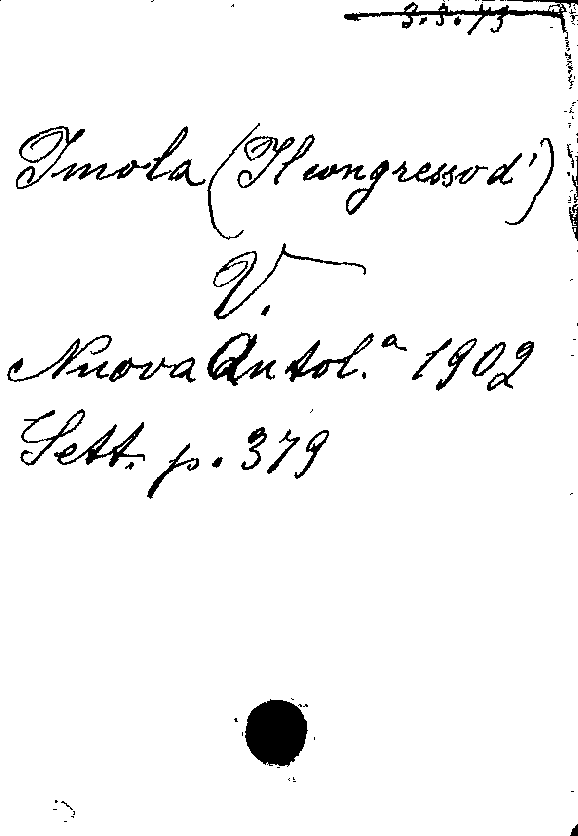 3.3.73
Imola (Il congresso d')
V.
Nuova Antol.ª 1902
Sett. p. 379